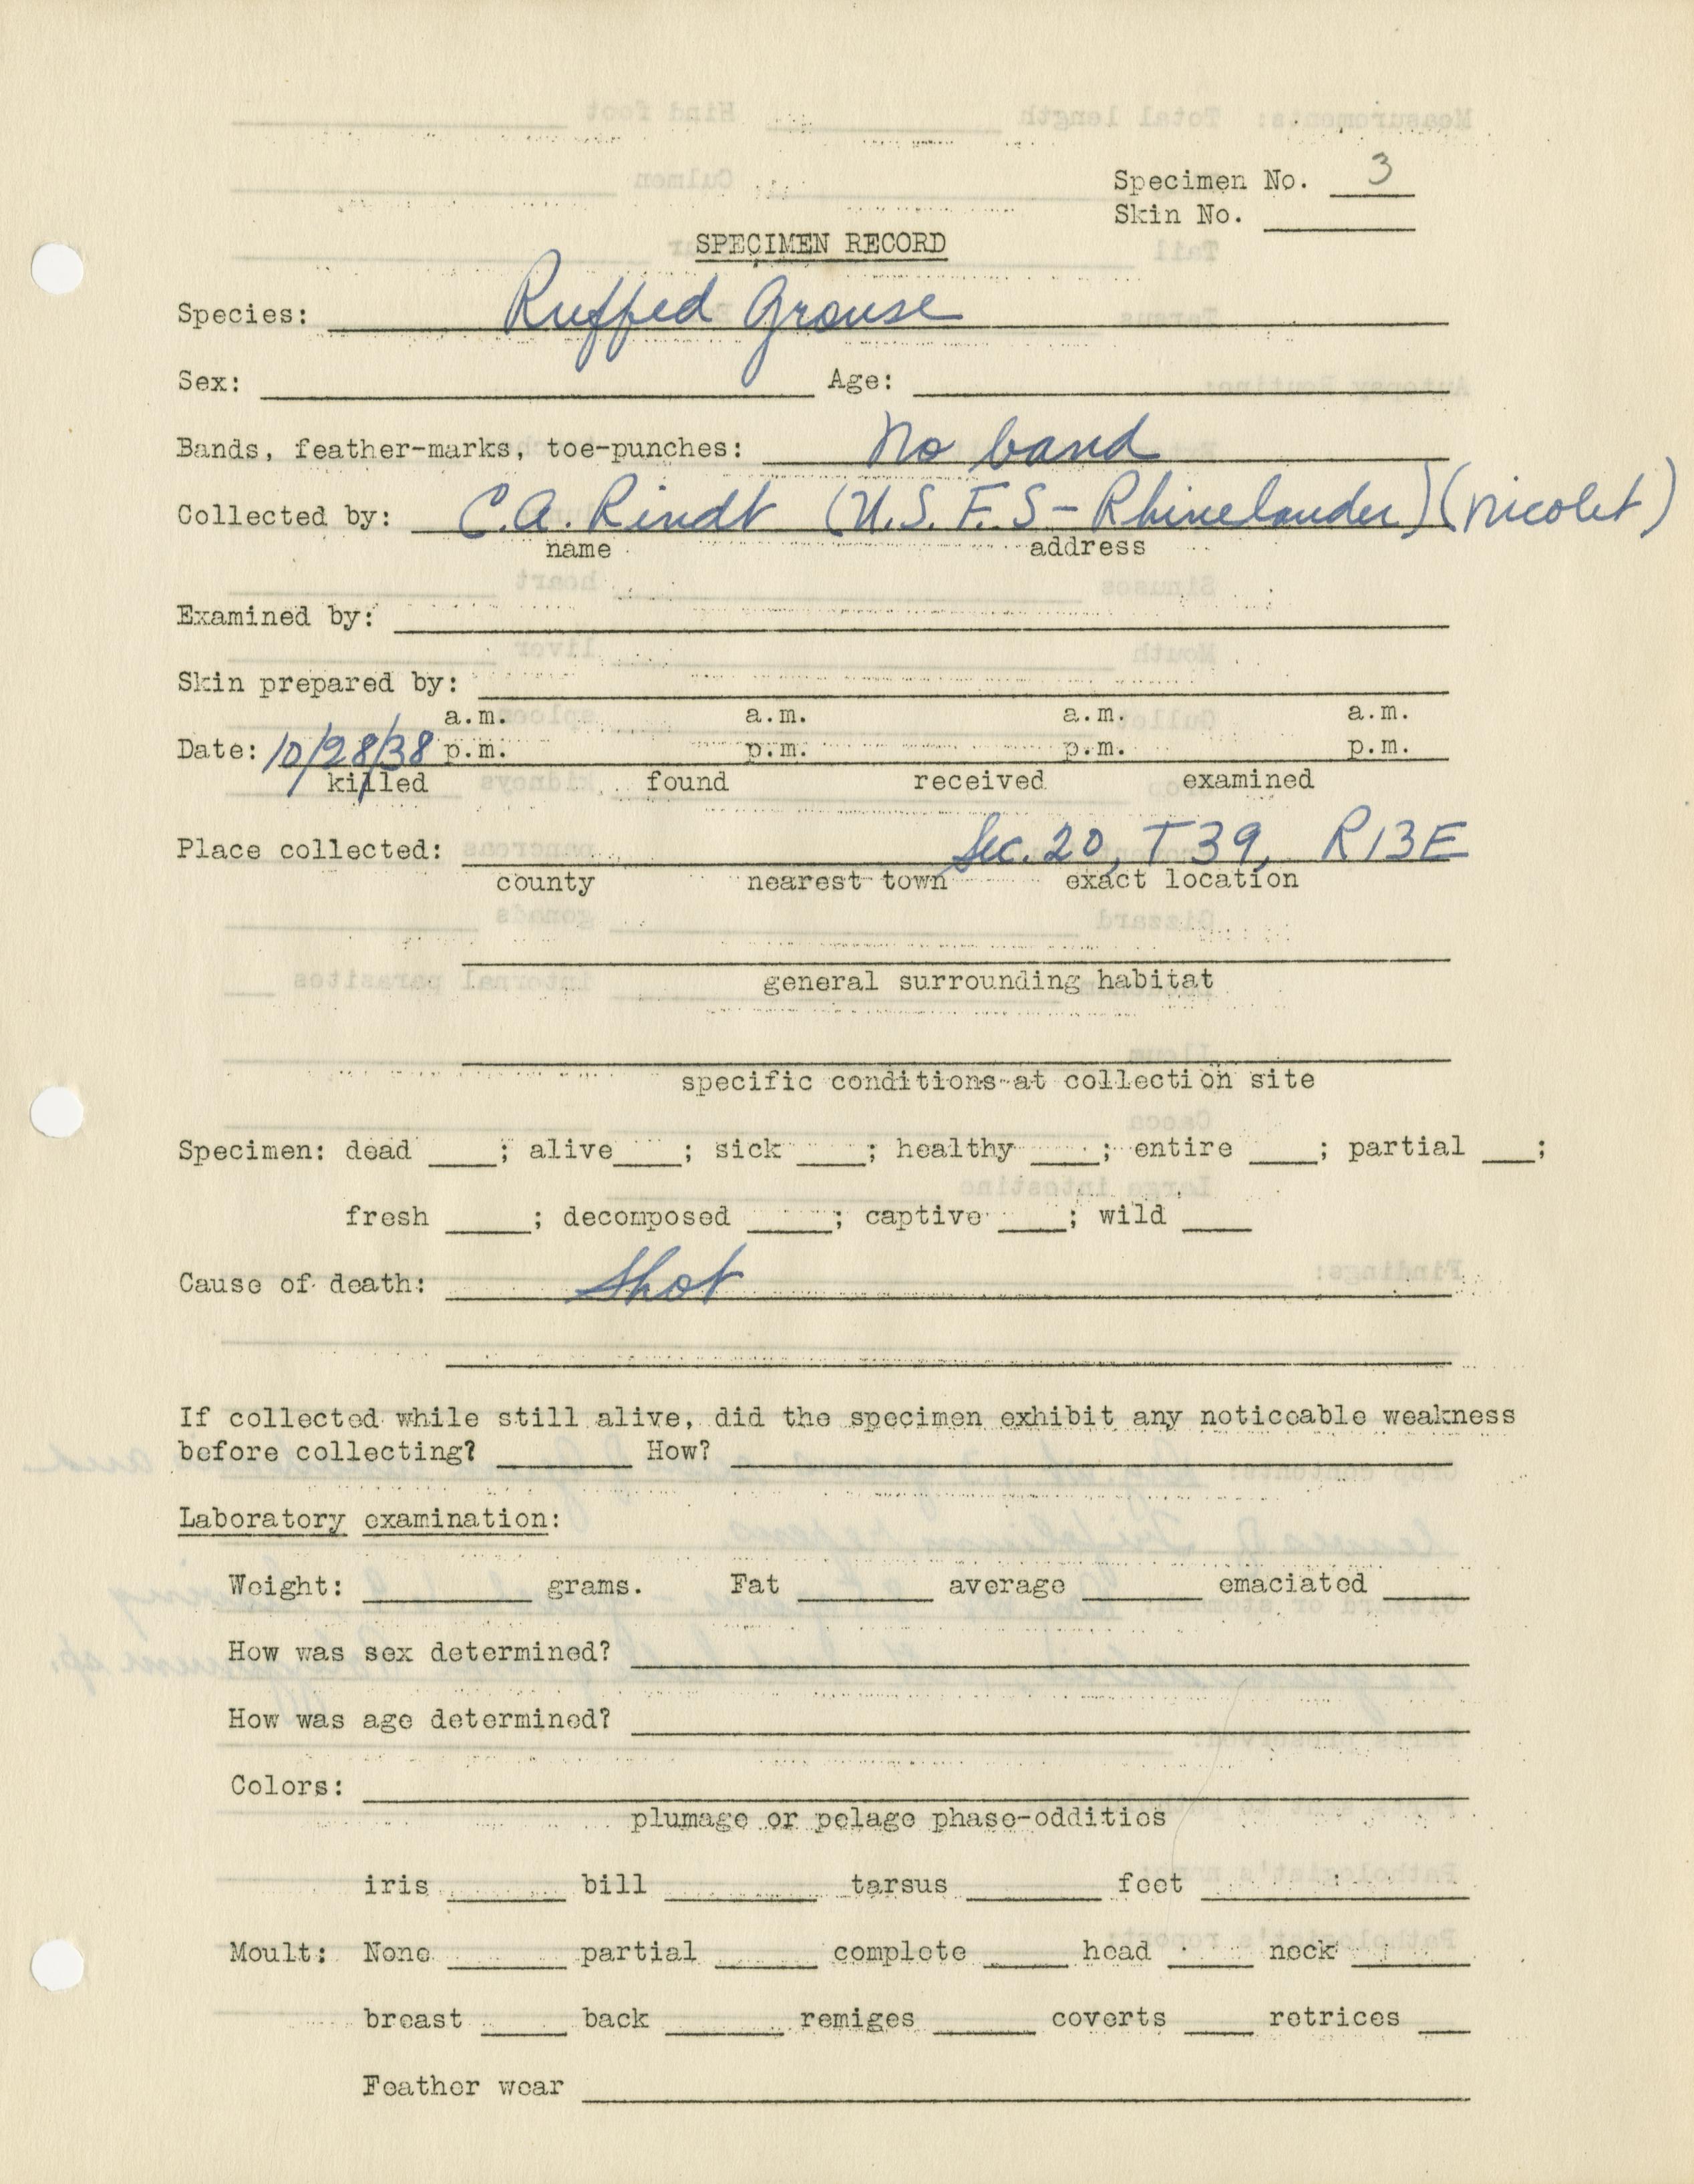 Specimen No. 3
Skin No. ____
SPECIMEN RECORD
Species: Ruffed Grouse
Sex: ____ Age: ____
Bands, feather-marks, toe-punches: No band
Collected by: C.A. Rindt (U.S.F.S - Rhinelander) (Nicolet)
name address
Examined by: ____
Skin prepared by: ____
a.m. a.m. a.m. a.m.
Date: 10/28/38 p.m. p.m. p.m. p.m.
killed found received examined
Place collected: Sec. 20, T39, R13E
county nearest town exact location
general surrounding habitat
specific conditions at collection site
Specimen: dead ____; alive ____; sick ____; healthy ____; entire ____; partial ____;
fresh ____; decomposed ____; captive ____; wild ____
Cause of death: Shot
If collected while still alive, did the specimen exhibit any noticeable weakness
before collecting? ____ How? ____
Laboratory examination:
Weight: ____ grams. Fat ____ average ____ emaciated ____
How was sex determined? ____
How was age determined? ____
Colors: ____
plumage or pelage phase-oddities
iris ____ bill ____ tarsus ____ feet ____
Moult: None ____ partial ____ complete ____ head ____ neck ____
breast ____ back ____ remiges ____ coverts ____ retrices ____
Feather wear ____